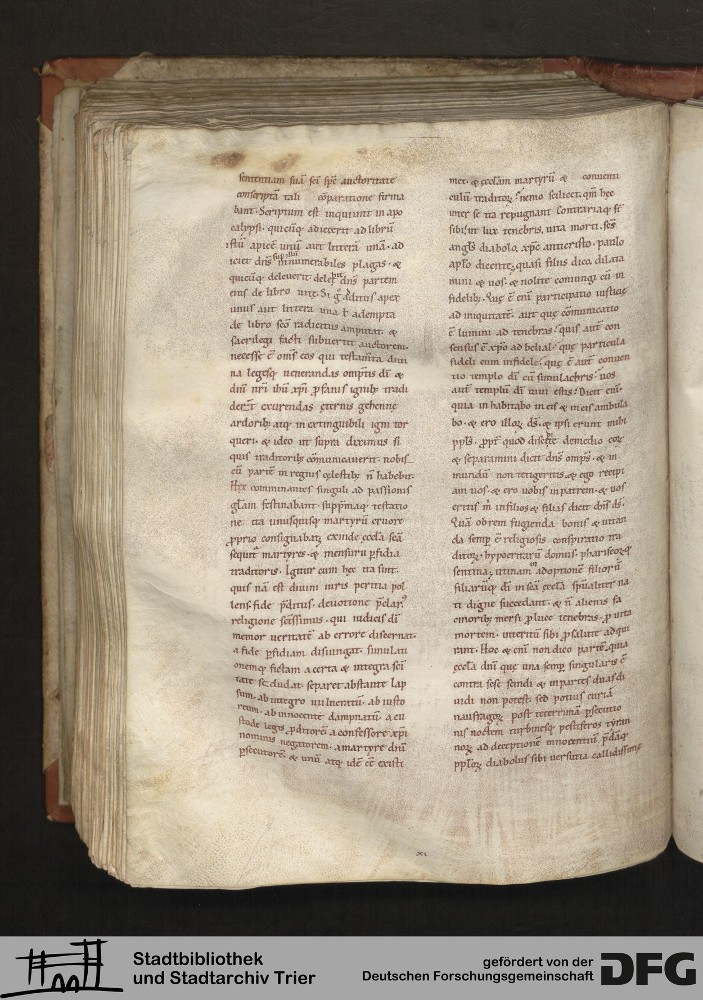 sententiam suā sc̄i sp̄c auctoritate
conscriptā tali cōparatione firma
bant. Scriptum est inquiunt in apo
calypsi. quicūq; adiecerit ad librū
istū apicē unū aut litterā unā. ad
iciet dn̄s sup illū innumerabiles plagas. &
quicūq; deleuerit delebit dn̄s partem
eius de libro uitę. Si g̊ additus apex
unus aut littera una ł adempta
de libro sc̄o radicitus amputat &
sacrilegi facti subuertit auctorem.
necesse ē om̄s eos qui testam̄ta diui
na legesq; uenerandas omp̄tis dī &
dn̄i nr̄i ihū xp̄i ꝓfanis ignib; tradi
der̄t exurendas ęternis gehennę
ardorib; atq; inextinguibili igni tor
queri. & ideo ut supra diximus si
quis traditorib; cōmunicauerit nobis
cū partē in regnis cęlestib; n̄ habebit.
Hęc comminantes singuli ad passionis
glām festinabant. supp̄maq; testatio
ne ita unusquisq; martyrū cruore
ꝓprio consignabat. exinde ęccła sc̄ā
sequit̄ martyres. & ꝑfidia
traditoris. Igitur cum hęc ita sint.
quis nā est diuini iuris peritia pol
lens. fide p̄ditus. deuotione p̄clar᷒
religione sc̄issimus. qui iudicis dī
memor ueritatē ab errore discernat.
a fide ꝑfidiam disiungat. simulati
onemq; fictam a certa & integra sc̄i
tate secludat. separet abstante lap
sum. ab integro uulneratū. ab iusto
reum. ab innocente dampnatū. a cu
stode legis ꝓditorē. a confessore xp̄i
nominis negatorem. a martyre dn̄i
ꝑsecutorē. & unū atq; idē ēē existi
met. & ęccłam martyrū & conuenti
culū traditor̨. nemo scilicet. qm̄ hęc
inter se ita repugnant contrariaq; sт̄
sibi. ut lux tenebris. uita morti. sc̄s
angls̄ diabolo. xp̄c anticristo. paulo
apło dicente. quasi filiis dico. dilata
mini & uos. & nolite coniungi cū in
fidelib; Quę ē enī participatio iusticię
ad iniquitatē. aut quę cōmunicatio
ē lumini ad tenebras? quis aut̄ con
sensus ē xp̄o ad belial? quę particula
fideli cum infidele? quę ē aut̄ conuen
tio templo dī cū simulachris? uos
aut̄ templū dī uiui estis. Dicit eni.
quia inhabitabo in eis & in eis ambula
bo. & ero illor̨ ds̄. & ipsi erunt mihi
ppłs. ꝓpt̄ quod discedite demedio eor̨
& separamini dicit dn̄s omp̄s. & in
mundū non tetigeritis. & ego recipi
am uos. & ero uobis in patrem. & uos
eritis m̄ in filios & filias dicit dn̄s ds̄.
Quā obrem fugienda bonis & uitan
da semꝑ ē religiosis conspiratio tra
ditor̨. hypocritarū domus. phariseor̨q;
sententia. utinam in adoptionē filior̨
filiarūq; dī in sc̄ā ęccła sp̄ualiter na
ti digne succedant. & n̄ alienis fa
cinorib; mersi ꝓ luce tenebras. ꝓ uita
mortem. interitū sibi ꝓ salute adqui
rant. Hoc & enī non dico partē. quia
ęccła dn̄i quę una semꝑ singularis ē
contra sese scindi & in partes duas di
uidi non potest. sed potius curiā
naufragor̨ post teterrimā ꝑsecutio
nis noctem turbinesq; pestiferos tyran
nor̨ ad deceptionē innocentiū p̄dāq;
ppłor̨ diabolus sibi uersutia callidissime
XI
Stadtbibliothek
und Stadtarchiv Trier
gefördert von der
Deutschen Forschungsgemeinschaft
DFG